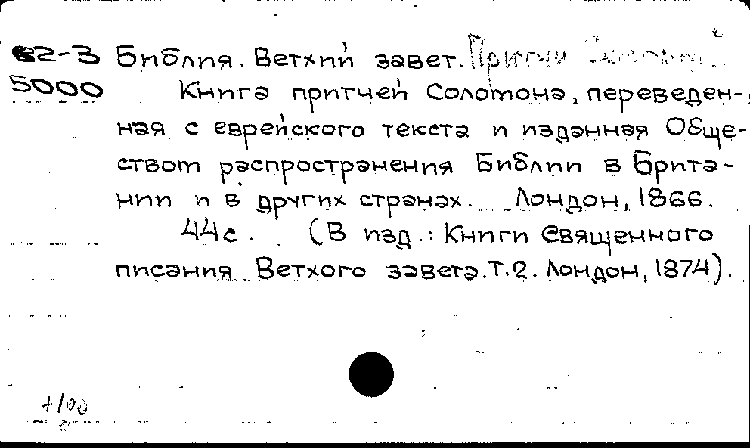 62-3 Библия. Ветхий завет. Притчи
5000 Книга притчей Соломона, переведен-
ная с еврейского текста и изданная Обще-
ством распространения Библии в Брита-
нии и в других странах. Лондон, 1866.
44с. (В изд.: Книги Священного
писания Ветхого завета. Т.2. Лондон, 1874).